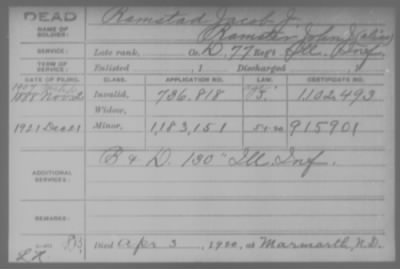 DEAD
NAME OF SOLDIER:
Ramstad Jacob J.
Ramster John, Alias
SERVICE:
Late rank, Co. D, 77 Reg't Ill. Inf.
TERM OF SERVICE:
Enlisted , 1 Discharged , 1
DATE OF FILING. CLASS. APPLICATION NO. LAW. CERTIFICATE NO.
1907
1888 Nov. 2 Invalid, 736.818 1102,493
Widow,
1921 Dec 21 Minor, 1,183,151 915901
ADDITIONAL SERVICES:
B & D. 130" Ill. Inf.
REMARKS:
Died Apr 3, 1920, at Marmarth, N.D.